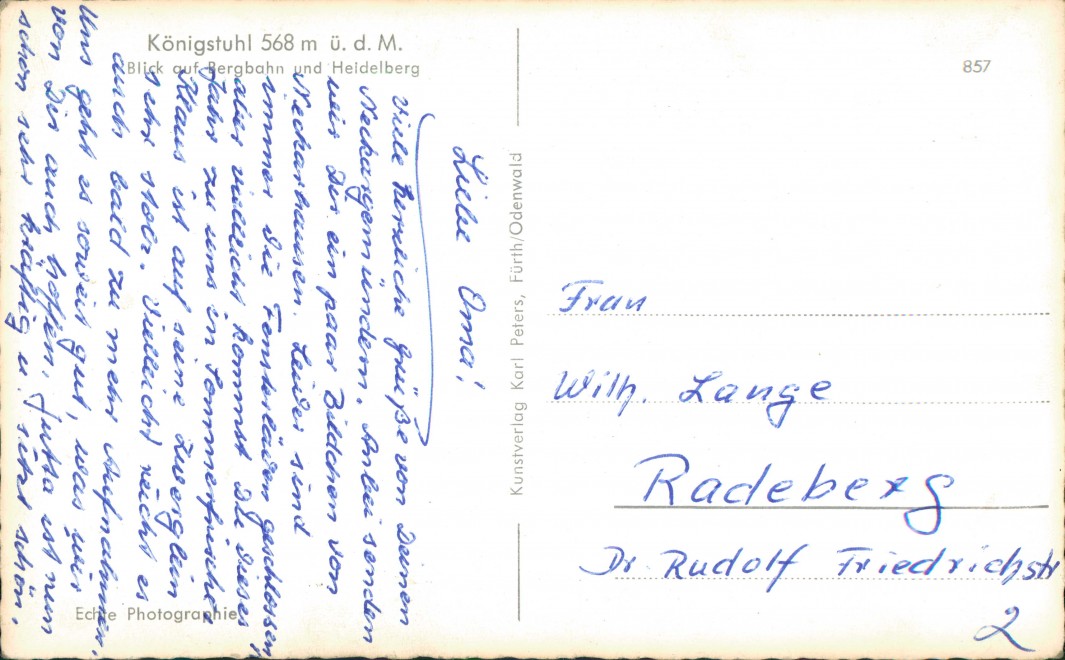 Königstuhl 568 m ü. d. M.
Blick auf Bergbahn und Heidelberg
857
Liebe Oma!
Viele herzliche Grüße von Deinen
Neckargemündern. Anbei senden
wir Dir ein paar Bildchen von
Neckarhausen. Leider sind
immer die Fensterläden geschlossen,
aber vielleicht kommst Du dieses
Jahr zu uns in Sommerfrische.
Klaus ist auf seine Zwerglein
sehr stolz. Vielleicht reicht es
auch bald zu mehr Aufnahmen.
Uns geht es soweit gut, was wir
von Dir auch hoffen. Jutta ist nun
schon sehr kräftig u. sitzt schön.
Echte Photographie
Kunstverlag Karl Peters, Fürth/Odenwald
Frau
Wilh. Lange
Radeberg
Dr. Rudolf Friedrichstr
2